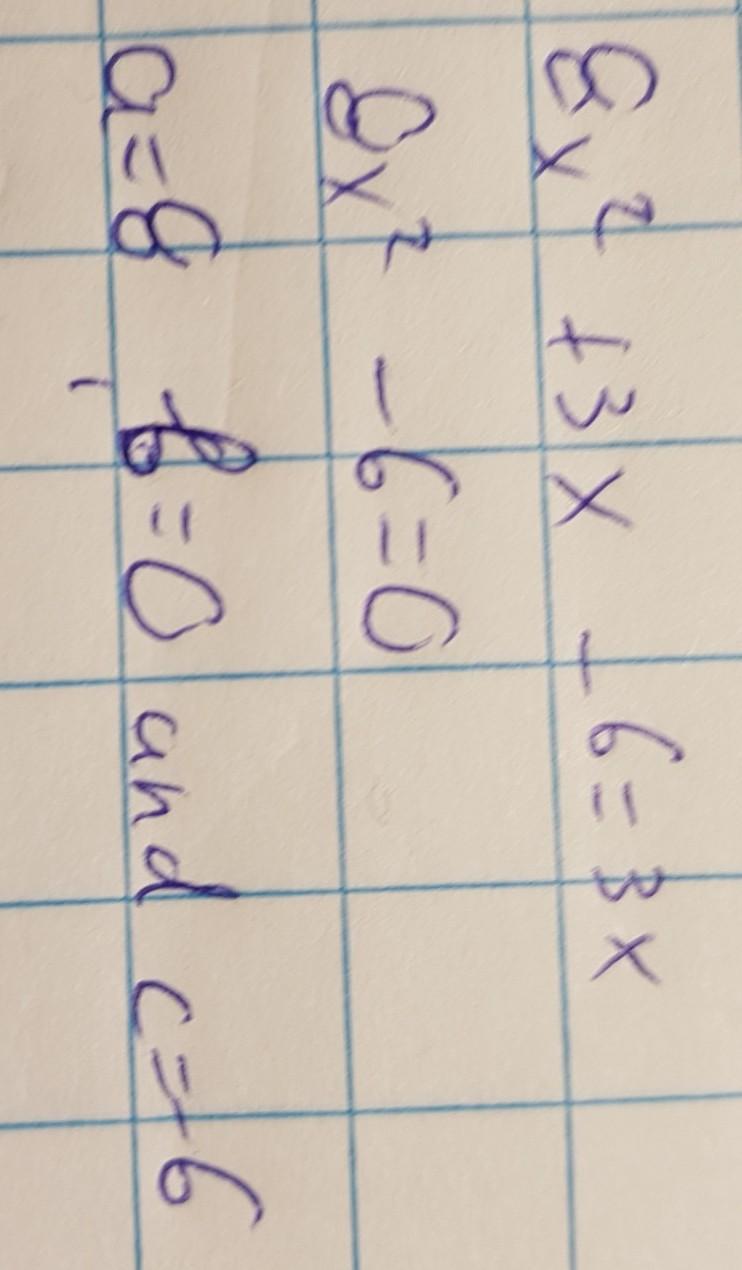 8x² + 3x - 6 = 3x
8x² - 6 = 0
a = 8, b = 0 and c = -6